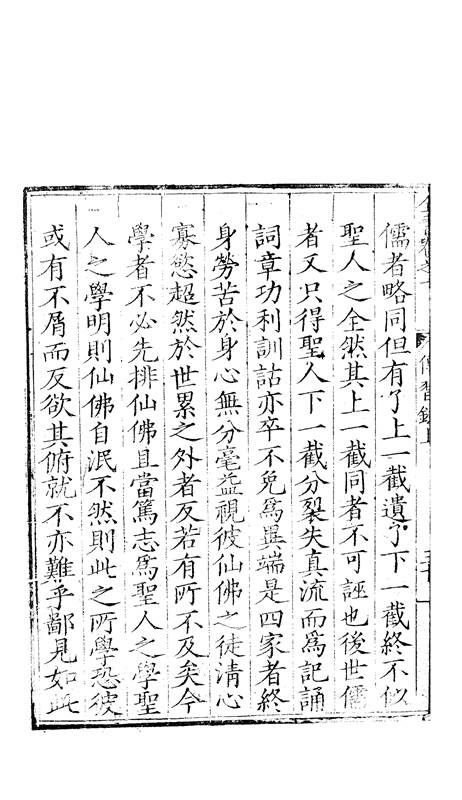 傳習錄上
儒者略同但有了上一截遺了下一截終不似
聖人之全然其上一截同者不可誣也後世儒
者又只得聖人下一截分裂失真流而爲記誦
詞章功利訓詁亦卒不免爲異端是四家者終
身勞苦於身心無分毫益視彼仙佛之徒清心
寡慾超然於世累之外者反若有所不及矣今
學者不必先排仙佛且當篤志爲聖人之學聖
人之學明則仙佛自泯不然則此之所學恐彼
或有不屑而反欲其俯就不亦難乎鄙見如此